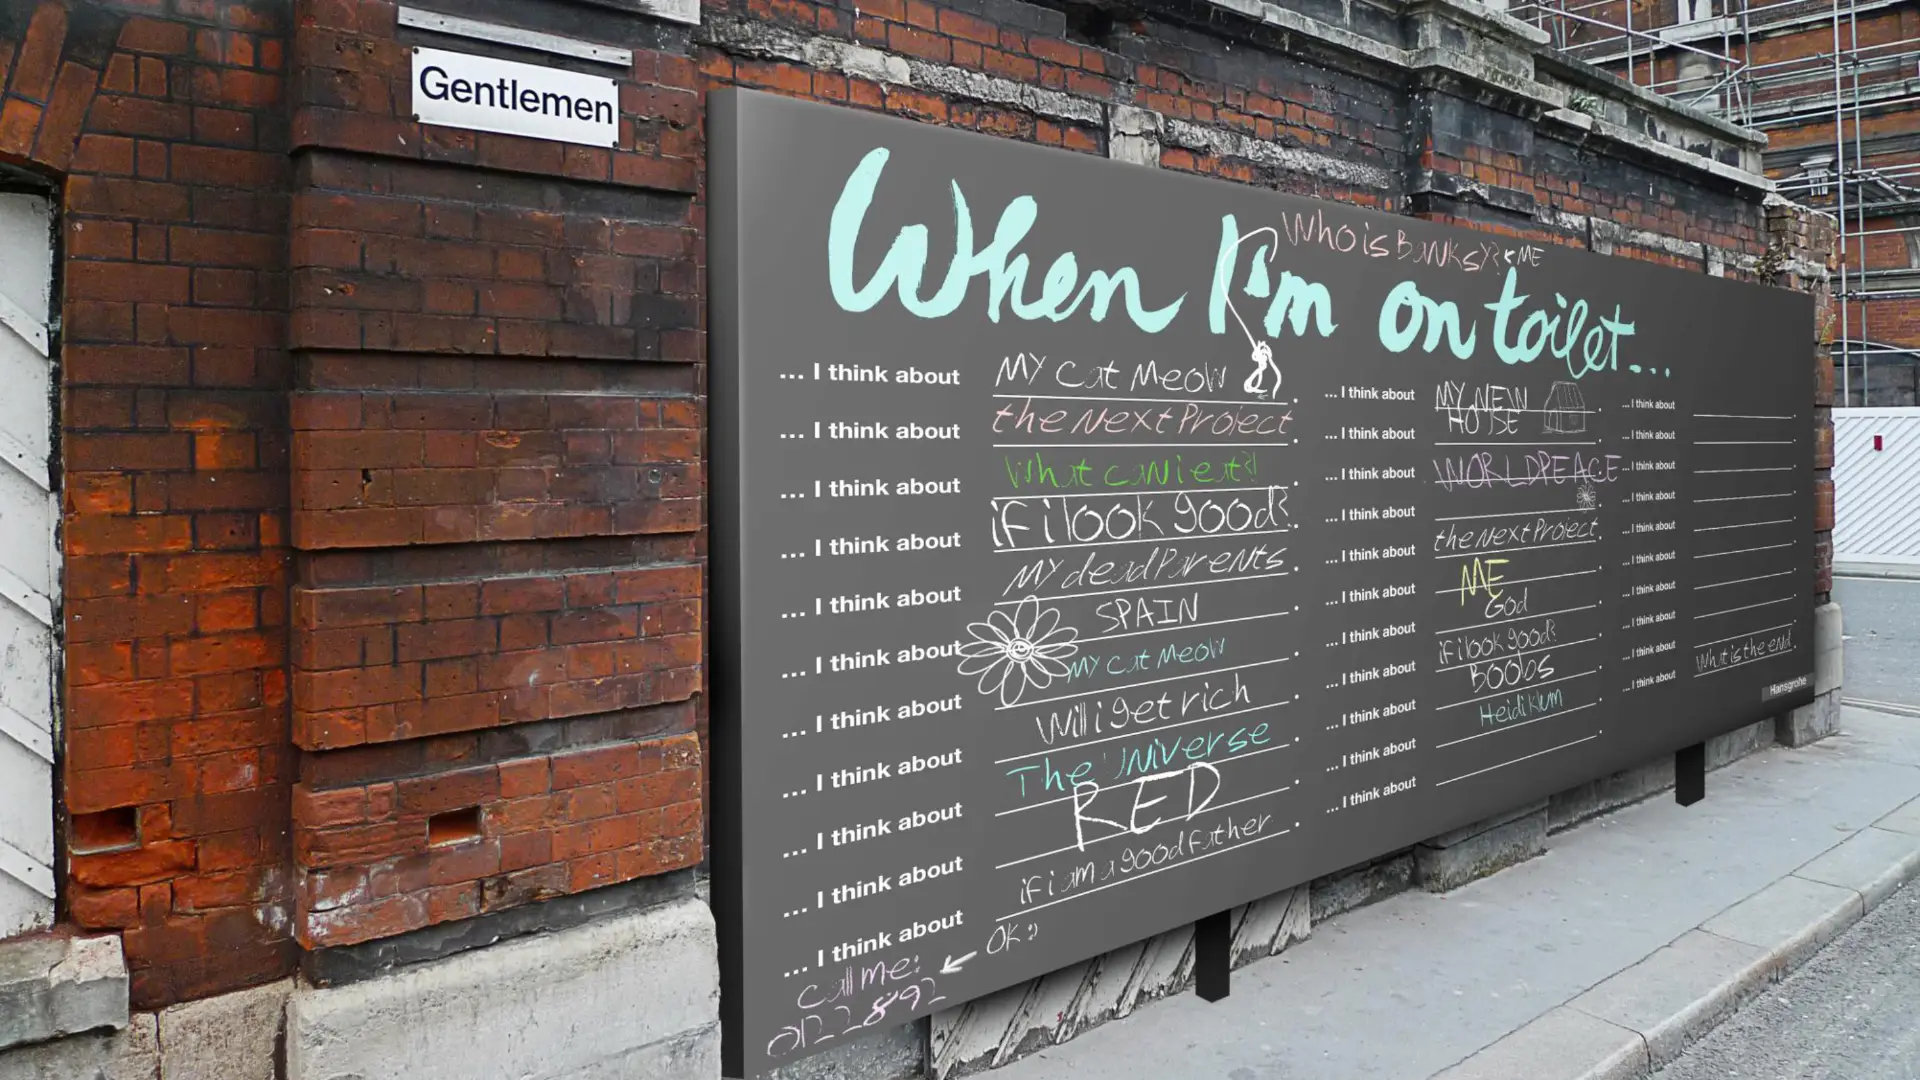 Gentlemen
Who is Banksy? ME
When I'm on toilet...
... I think about My cat Meow.
... I think about the Next Project.
... I think about What can i eat?!
... I think about if i look good?.
... I think about My dead Parents.
... I think about SPAIN.
... I think about My cat Meow.
... I think about Will i get rich.
... I think about The Universe.
... I think about RED.
... I think about if i am a good father.
... I think about
OK :)
call me:
0122892
... I think about MY NEW HOUSE.
... I think about
... I think about WORLDPEACE
... I think about .
... I think about the Next Project.
... I think about ME
... I think about God.
... I think about if i look good?.
... I think about Boobs.
... I think about Heidi klum.
... I think about .
... I think about .
... I think about .
... I think about .
... I think about .
... I think about .
... I think about .
... I think about .
... I think about .
... I think about
... I think about What is the end.
... I think about
Hansgrohe